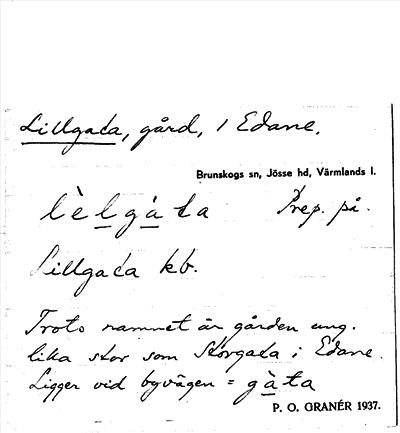 Lillgata, gård, i Edane.
Brunskogs sn, Jösse hd, Värmlands l.
lèlgàta Prep. på.
Lillgata kb.
Trots namnet är gården ung.
lika stor som Storgata i Edane.
Ligger vid byvägen = gàta
P. O. GRANÉR 1937.